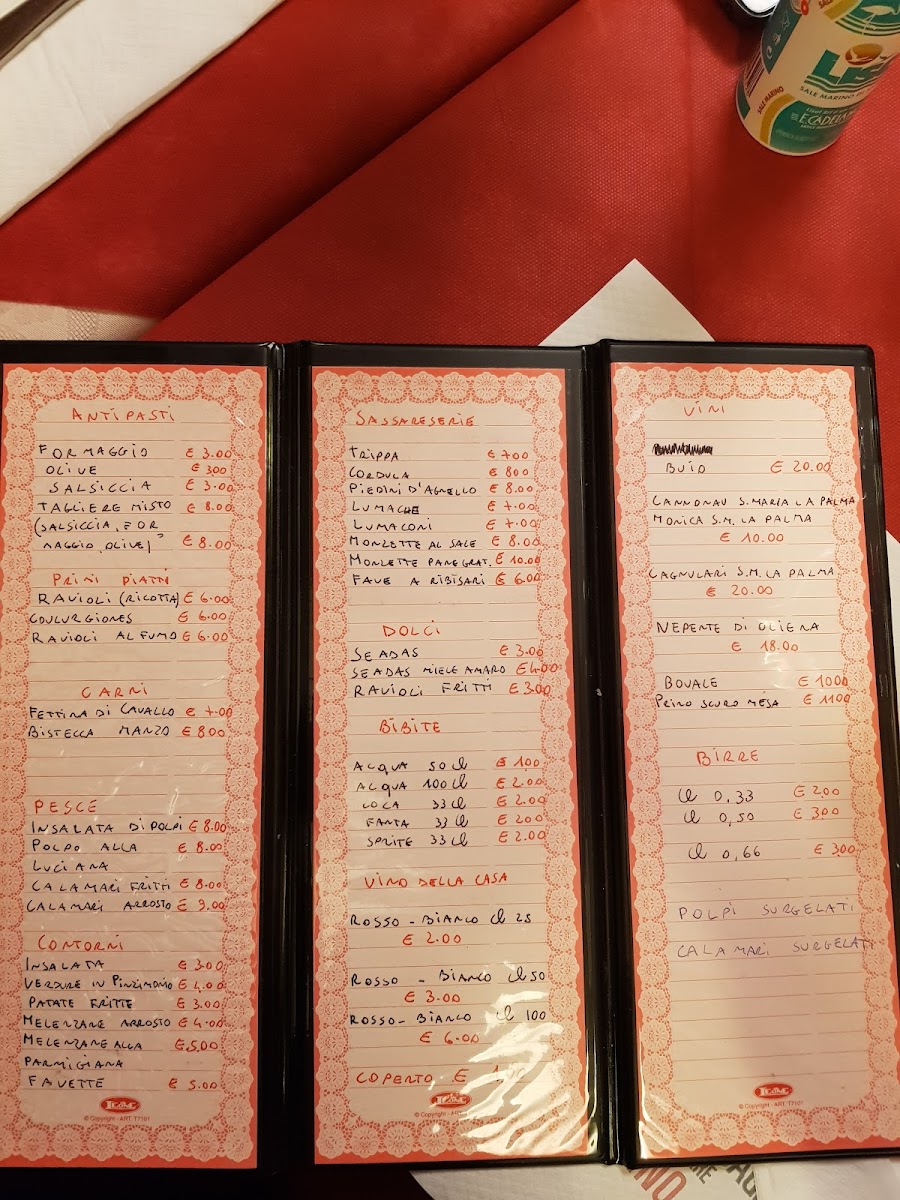 SALE MARINO
SALE MARINO
ANTIPASTI
FORMAGGIO € 3.00
OLIVE € 300
SALSICCIA € 3.00
TAGLIERE MISTO € 8.00
(SALSICCIA, FOR
MAGGIO, OLIVE) € 8.00
PRIMI PIATTI
RAVIOLI (RICOTTA) € 6.00
COULURGIONES € 6.00
RAVIOLI AL FUMO € 6.00
CARNI
FETTINA DI CAVALLO € 7.00
BISTECCA MANZO € 800
PESCE
INSALATA DI POLPI € 8.00
POLPO ALLA € 8.00
LUCIANA
CALAMARI FRITTI € 8.00
CALAMARI ARROSTO € 9.00
CONTORNI
INSALATA € 3.00
VERDURE IN PINZIMONIO € 4.00
PATATE FRITTE € 3.00
MELENZANE ARROSTO € 4.00
MELENZANE ALLA € 5,00
PARMIGIANA
FAVETTE € 5.00
© Copyright - ART. T7101
SASSARESERIE
TRIPPA € 700
CORDULA € 800
PIEDINI D'AGNELLO € 8.00
LUMACHE € 7.00
LUMACONI € 7.00
MONZETTE AL SALE € 8.00
MONZETTE PANEGRAT. € 10.00
FAVE A RIBISARI € 6.00
DOLCI
SEADAS € 3.00
SEADAS MIELE AMARO € 4.00
RAVIOLI FRITTI € 3.00
BIBITE
ACQUA 50 cl € 1,00
ACQUA 100 cl € 2.00
COCA 33 cl € 2.00
FANTA 33 cl € 200
SPRITE 33 cl € 2.00
VINO DELLA CASA
ROSSO - BIANCO cl 25
€ 2.00
ROSSO - BIANCO cl 50
€ 3.00
ROSSO - BIANCO cl 100
€ 6.00
COPERTO €
© Copyright - ART.
VINI
BUIO € 20.00
CANNONAU S. MARIA LA PALMA
MONICA S.M. LA PALMA
€ 10.00
CAGNULARI S.M. LA PALMA
€ 20.00
NEPENTE DI OLIENA
€ 18.00
BOVALE € 1000
PRIMO SCURO MESA € 1100
BIRRE
cl 0,33 € 200
cl 0,50 € 300
cl 0,66 € 300
POLPI SURGELATI
CALAMARI SURGELATI
© Copyright - ART. T7101